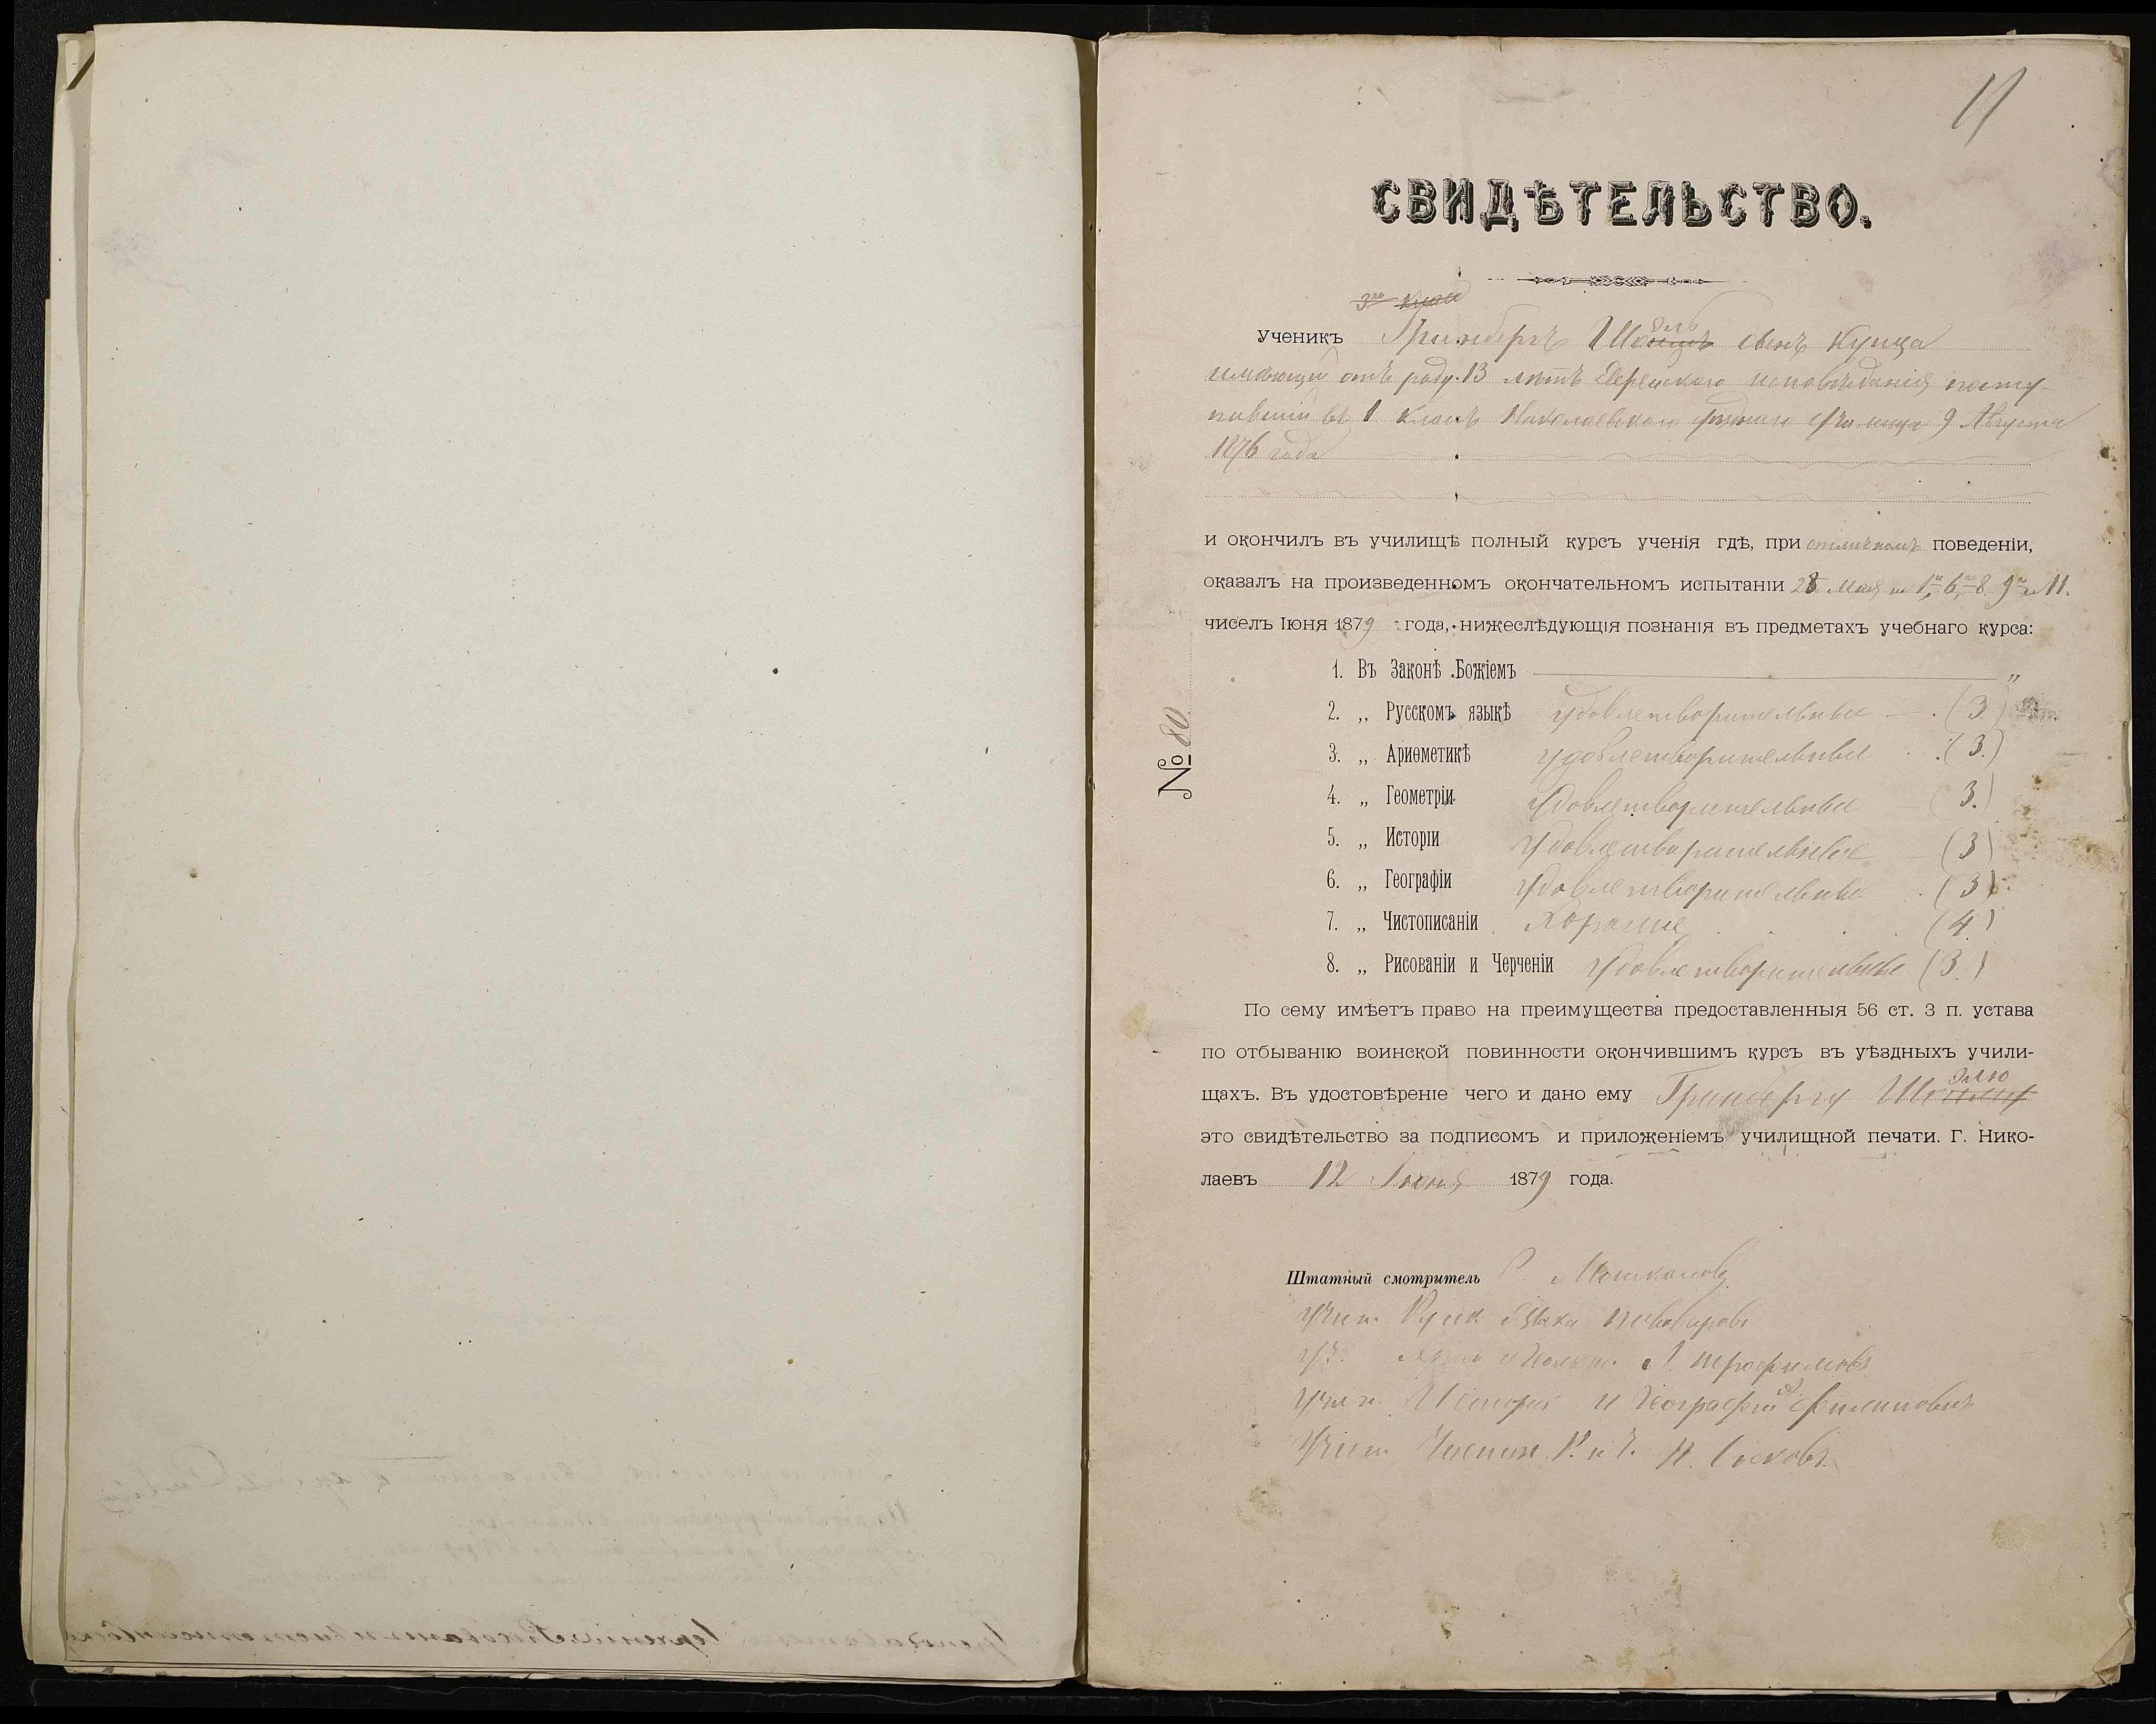 11
СВИДѢТЕЛЬСТВО.
Ученикъ Гринбергъ сынъ купца
имѣющій отъ роду 13 лѣтъ Еврейскаго исповѣданія посту-
пившій въ 1 классъ Николаевскаго уѣзднаго училища 9 Августа
1876 года
и окончилъ въ училищѣ полный курсъ ученія гдѣ, при отличномъ поведеніи,
оказалъ на произведенномъ окончательномъ испытаніи 28 Мая и 1, 6, 8, 9 и 11.
чиселъ Іюня 1879 года, нижеслѣдующія познанія въ предметахъ учебнаго курса:
№ 80
1. Въ Законѣ Божіемъ „
2. „ Русскомъ языкѣ удовлетворительные (3)
3. „ Ариѳметикѣ удовлетворительные (3.)
4. „ Геометріи удовлетворительные (3.)
5. „ Исторіи удовлетворительные (3)
6. „ Географіи удовлетворительные (3)
7. „ Чистописаніи Хорошіе (4)
8. „ Рисованіи и Черченіи удовлетворительные (3.)
По сему имѣетъ право на преимущества предоставленныя 56 ст. 3 п. устава
по отбыванію воинской повинности окончившимъ курсъ въ уѣздныхъ учили-
щахъ. Въ удостовѣреніе чего и дано ему Гринбергу
это свидѣтельство за подписомъ и приложеніемъ училищной печати. Г. Нико-
лаевъ 12 Іюня 1879 года.
Штатный смотритель
Учит. Русск. языка Пивоваровъ
Уч. Л. Трофимовъ
Учит. Исторіи и Географіи Филиповичъ
Учит. Чистоп. Р. и Ч.